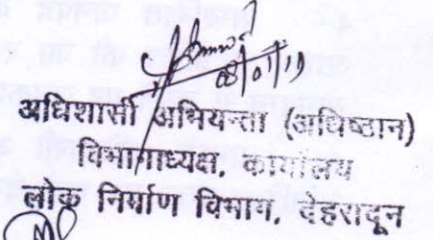 08/01/19
अधिशासी अभियन्ता (अधिष्ठान)
विभागाध्यक्ष, कार्यालय
लोक निर्माण विभाग, देहरादून